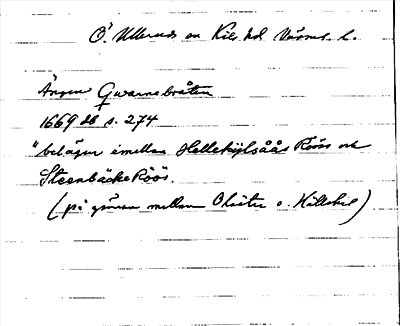 Ö. Ullerud sn Kils hd Värml. l.
Ängen Qwarnebråten
1669 db s. 274
"belägen emellan Hellekijlsåås Röös och
Steenbäcke Röös.
(på gränsen mellan o. Hällekil)